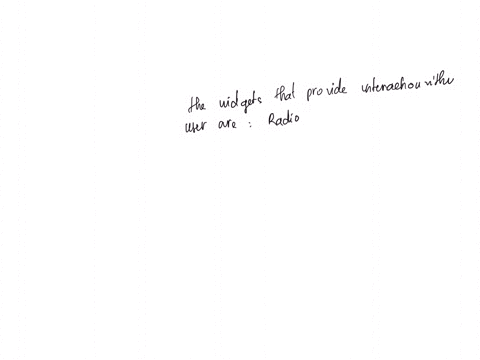 the widgets that provide interaction with the
user are : Radio